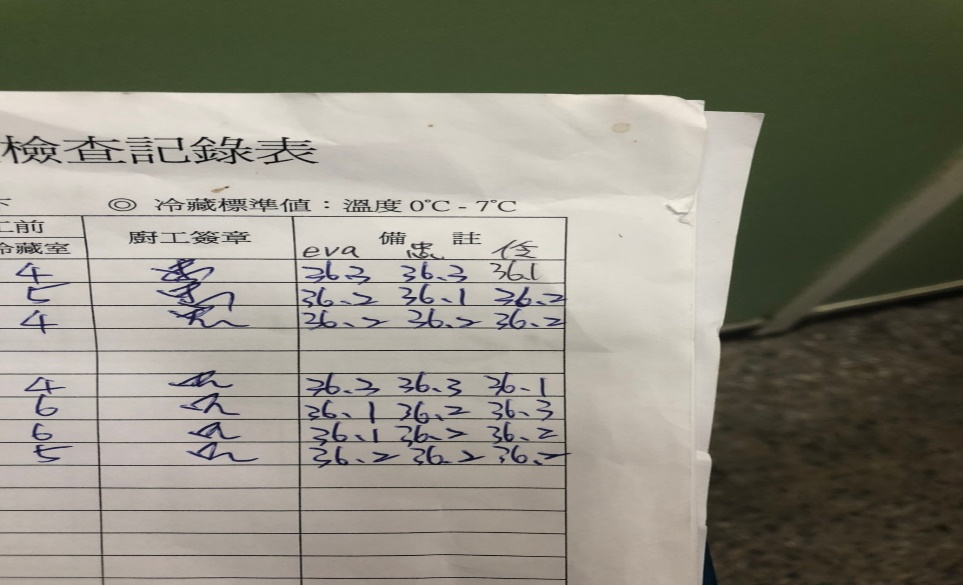 檢查記錄表
◎ 冷藏標準值：溫度 0℃ - 7℃
工前 廚工簽章 備 註
冷藏室 eva 忠
4 36.3 36.3 36.1
5 36.2 36.1 36.2
4 36.2 36.2 36.2
4 36.3 36.3 36.1
6 36.1 36.2 36.3
6 36.1 36.2 36.2
5 36.2 36.2 36.2